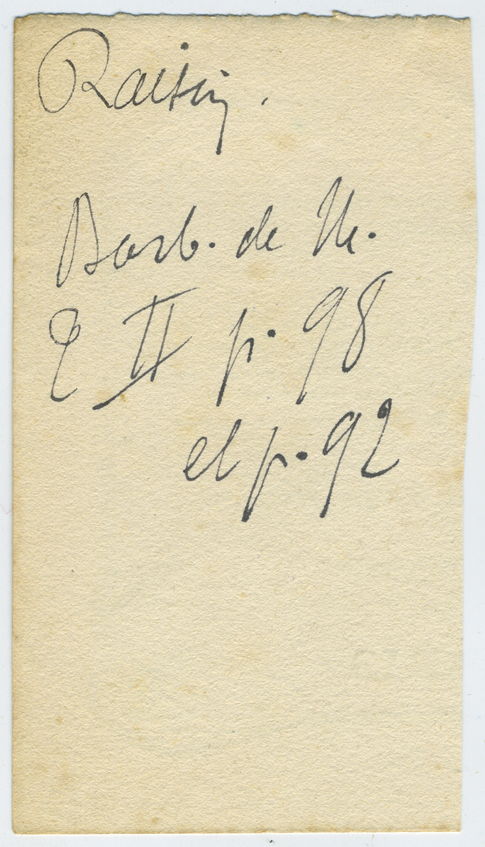 Raisin.
Barb. de M.
2 II p. 98
et p. 92